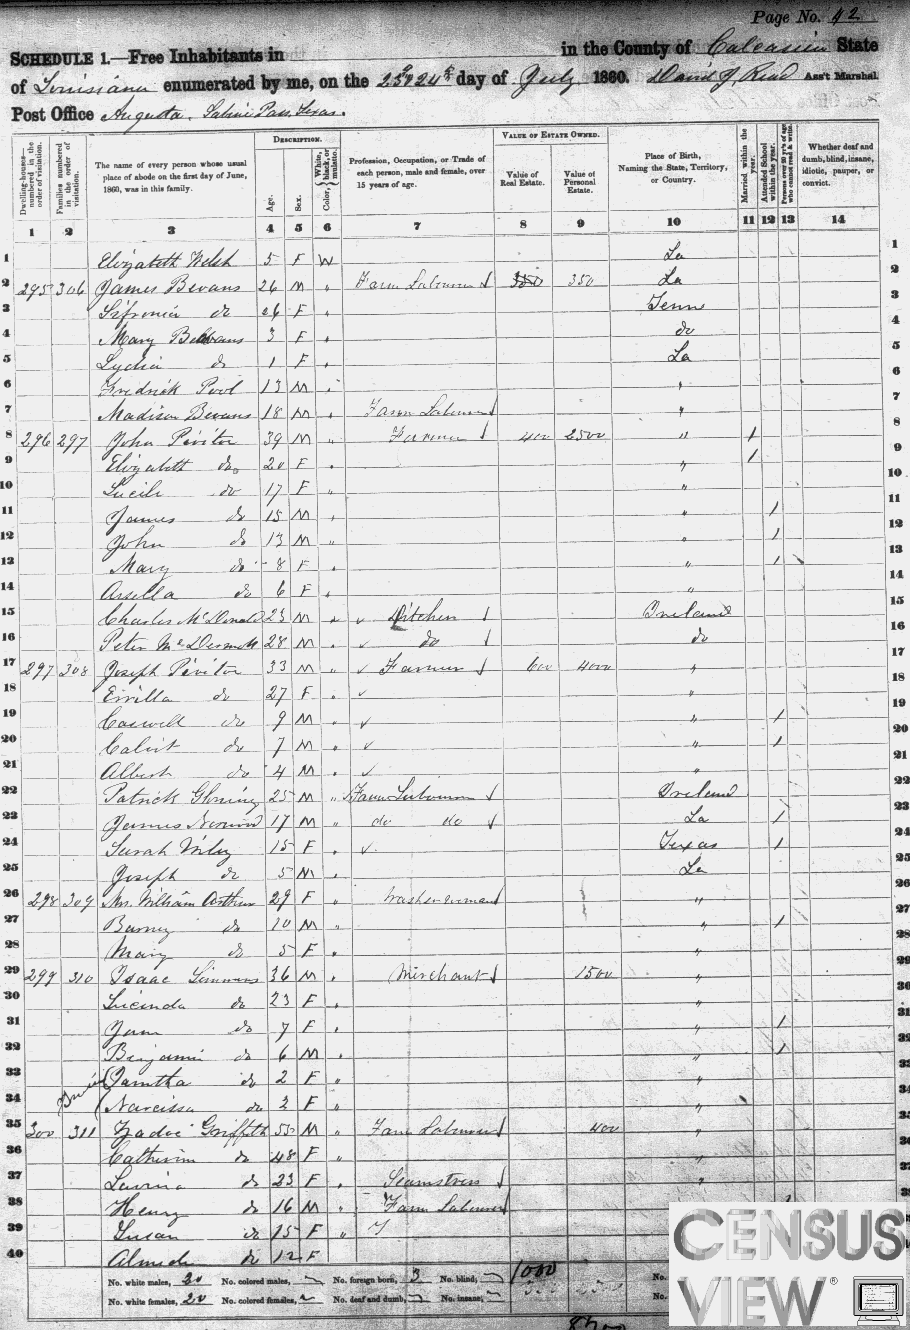 Page No. 42
SCHEDULE 1.—Free Inhabitants in in the County of Calcasieu State
of Louisiana enumerated by me, on the 23d 24th day of July 1860. David J. Read Ass't Marshal.
Post Office Augusta, Sabine Pass, Texas.
Dwelling-houses—numbered in the order of visitation. Families numbered in the order of visitation. The name of every person whose usual place of abode on the first day of June, 1860, was in this family. DESCRIPTION. Age. Sex. Color, White, black, or mulatto. Profession, Occupation, or Trade of each person, male and female, over 15 years of age. VALUE OF ESTATE OWNED. Value of Real Estate. Value of Personal Estate. Place of Birth, Naming the State, Territory, or Country. Married within the year. Attended School within the year. Persons over 20 y'rs of age who cannot read & write. Whether deaf and dumb, blind, insane, idiotic, pauper, or convict.
1 2 3 4 5 6 7 8 9 10 11 12 13 14
1 Elizabeth Welsh 5 F W La 1
2 295 306 James Bevans 26 M " Farm Labourer 350 350 La 2
3 Sifronia do 26 F " Tenn 3
4 Mary Bevans 3 F " do 4
5 Lydia do 1 F " La 5
6 Fredrick Pool 13 M " " 6
7 Madison Bevans 18 M " Farm Labourer " 7
8 296 297 John Pevitor 39 M " Farmer 400 2500 " 1 8
9 Elizabeth do 20 F " " 1 9
10 Lucile do 17 F " " 10
11 James do 15 M " " 1 11
12 John do 13 M " " 1 12
13 Mary do 8 F " " 1 13
14 Arsella do 6 F " " 14
15 Charles McDonald 23 M " Ditcher Ireland 15
16 Peter McDermott 28 M " do do 16
17 297 308 Joseph Pevitor 33 M " Farmer 600 4000 " 17
18 do 27 F " " 18
19 Caswell do 9 M " " 1 19
20 Calvit do 7 M " " 1 20
21 Albert do 4 M " " 21
22 Patrick 25 M " Farm Labourer Ireland 22
23 James 17 M " do do La 1 23
24 Sarah Wiley 15 F " Texas 1 24
25 Joseph do 5 M " La 25
26 298 309 Mrs. William Arthur 29 F " Washerwoman " 26
27 Barney do 10 M " " 1 27
28 Mary do 5 F " " 28
29 299 310 Isaac Simmons 36 M " Merchant 1500 " 29
30 Lucinda do 23 F " " 30
31 Jane do 7 F " " 1 31
32 Benjamin do 6 M " " 1 32
33 do 2 F " " 33
34 Narcissa do 2 F " " 34
35 300 311 Zadoc Griffith 55 M " Farm Labourer 400 " 35
36 Catherine do 48 F " " 36
37 Lavina do 23 F " Seamstress " 37
38 Henry do 16 M " Farm Labourer 38
39 Susan do 15 F " 39
40 do 12 F
No. white males, 20 No. colored males, No. foreign born, 3 No. blind, 1000 No.
No. white females, 20 No. colored females, No. deaf and dumb, No. insane, No.
CENSUS
VIEW®